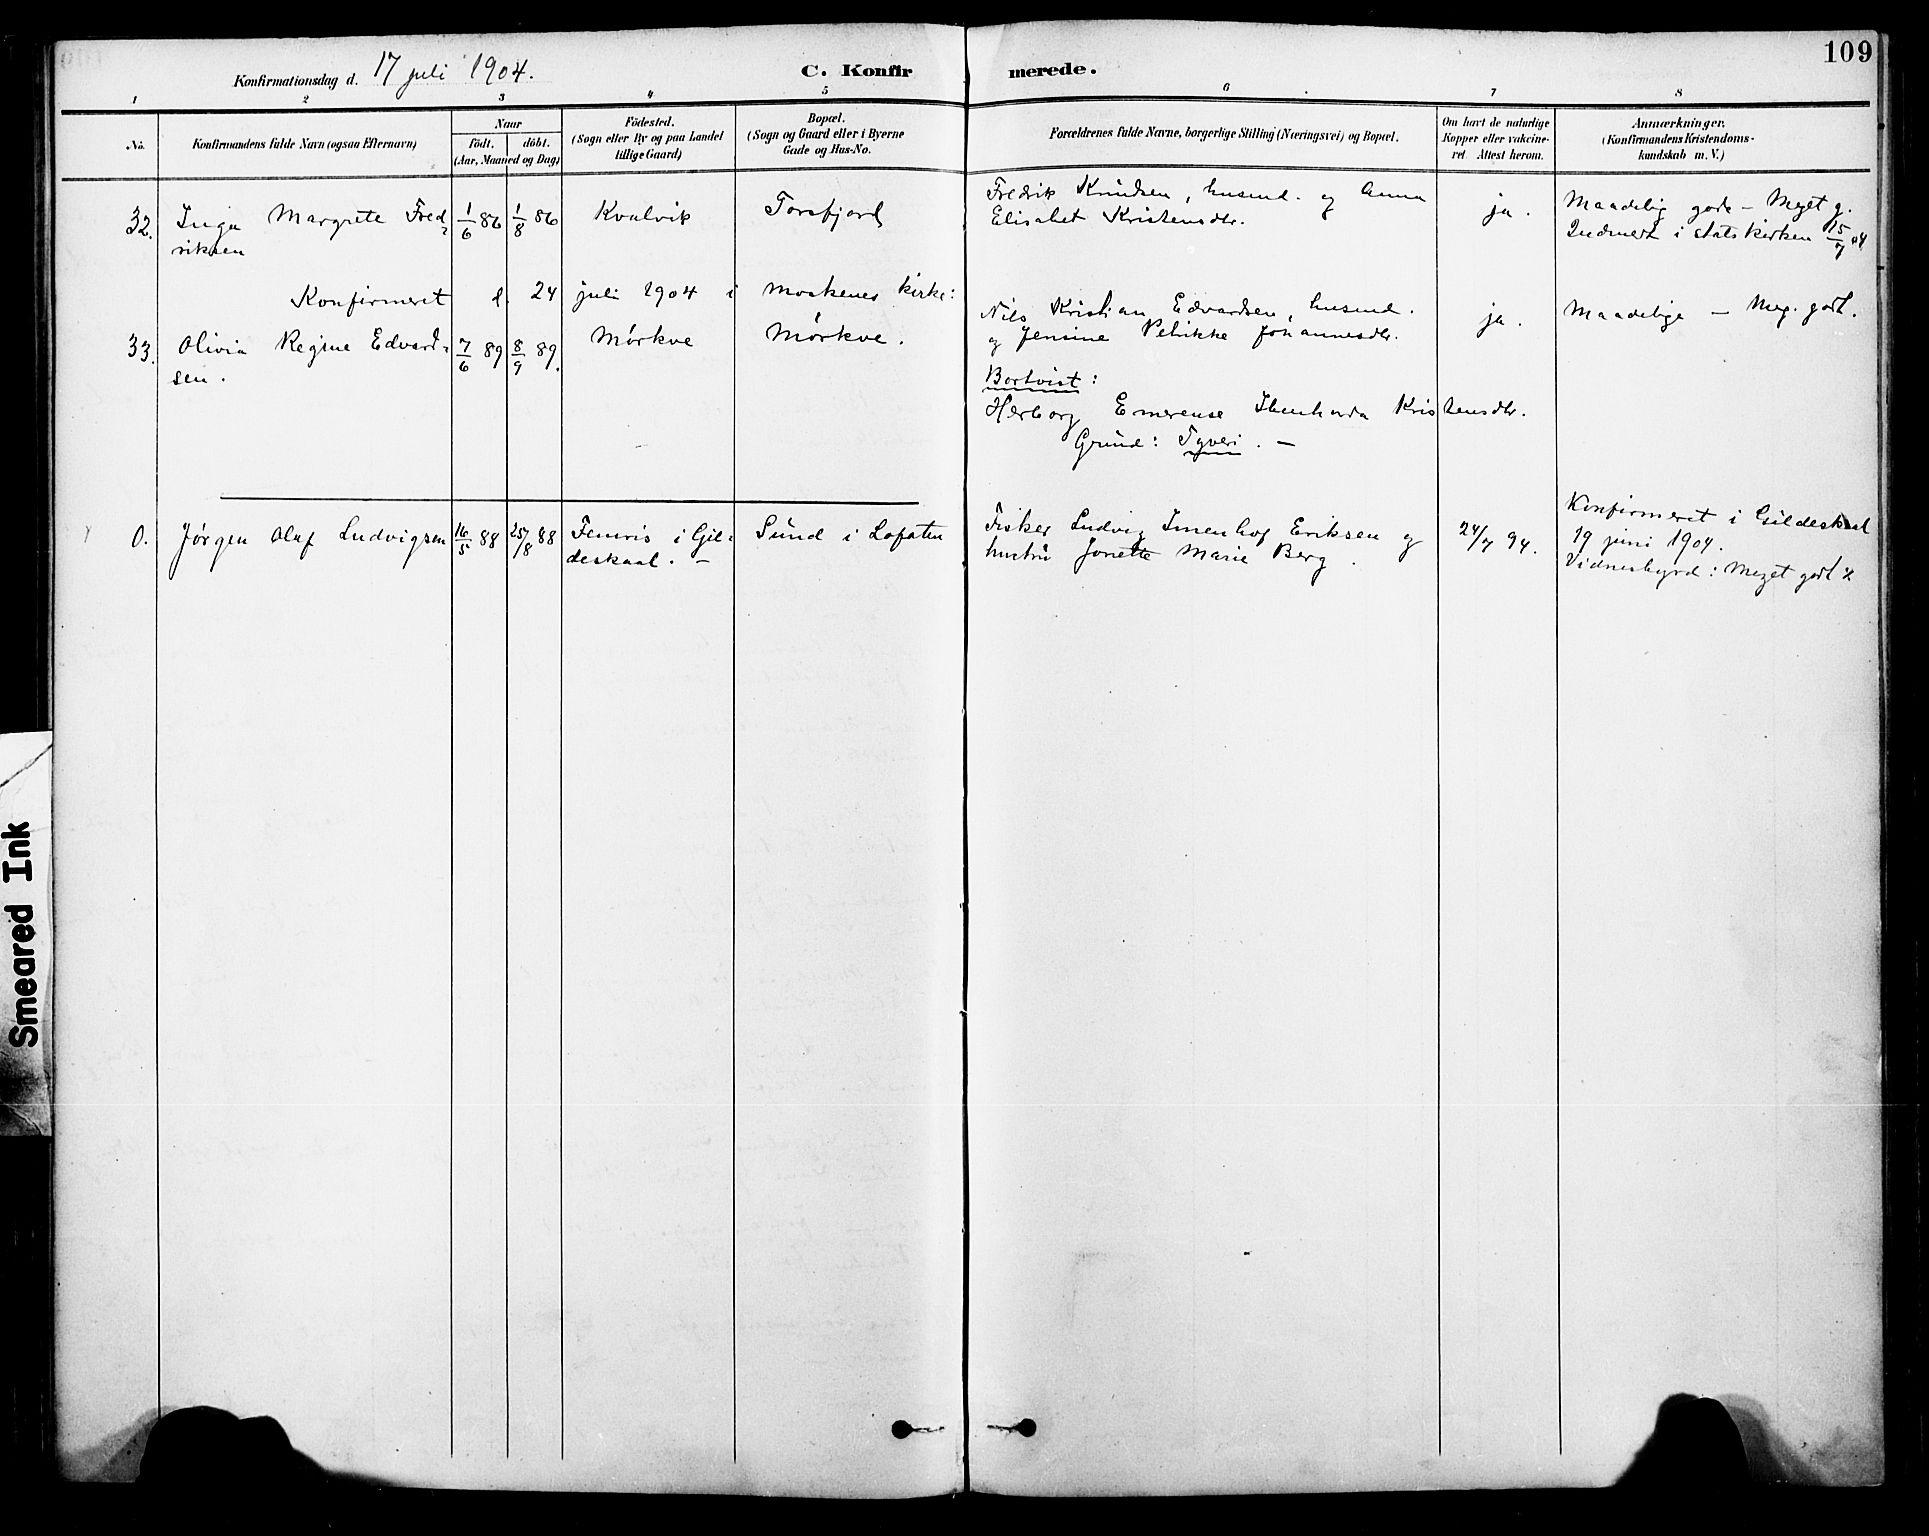 109
Konfirmationsdag d. 17 juli 1904.
C. Konfirmerede.
1 2 3 4 5 6 7 8
No.
Konfirmandens fulde Navn (ogsaa Efternavn)
Naar
födt. döbt.
(Aar, Maaned og Dag)
Födested.
(Sogn eller By og paa Landet
tillige Gaard)
Bopæl.
(Sogn og Gaard eller i Byerne
Gade og Hus-No.
Forældrenes fulde Navne, borgerlige Stilling (Næringsvei) og Bopæl.
Om havt de naturlige
Kopper eller vakcine-
ret. Attest herom.
Anmærkninger.
(Konfirmandens Kristendoms-
kundskab m. V.)
32. Inga Margrete Fred- 1/6 86 1/8 86 Kvalvik Torsfjord
riksen
Fredrik Knudsen, husmd. og Anna
Elisabet Kristensdtr.
ja.
Maadelig gode - Meget g.
Indmeldt i statskirken 15/7 04
Konfirmeret d. 24 juli 1904 i Moskenes kirke:
33. Olivia Regine Edvard- 7/6 89 8/9 89. Mørkve Mørkve.
sen.
Nils Kristian Edvardsen, husmd.
og Jensine Petrikke Johannesdtr.
ja.
Maadelige - Meg. godt.
Bortvist:
Herborg Emerense Kristensdtr.
Grund: Tyveri. -
0. Jørgen Olaf Ludvigsen 16/5 88 25/8 88 i Gil- Sund i Lofoten
deskaal. -
Fisker Ludvig Imenhof Eriksen og
hustru Jonette Marie Berg.
24/7 94.
Konfirmeret i Gildeskaal
19 juni 1904.
Vidnesbyrd: Meget godt
Smeared Ink